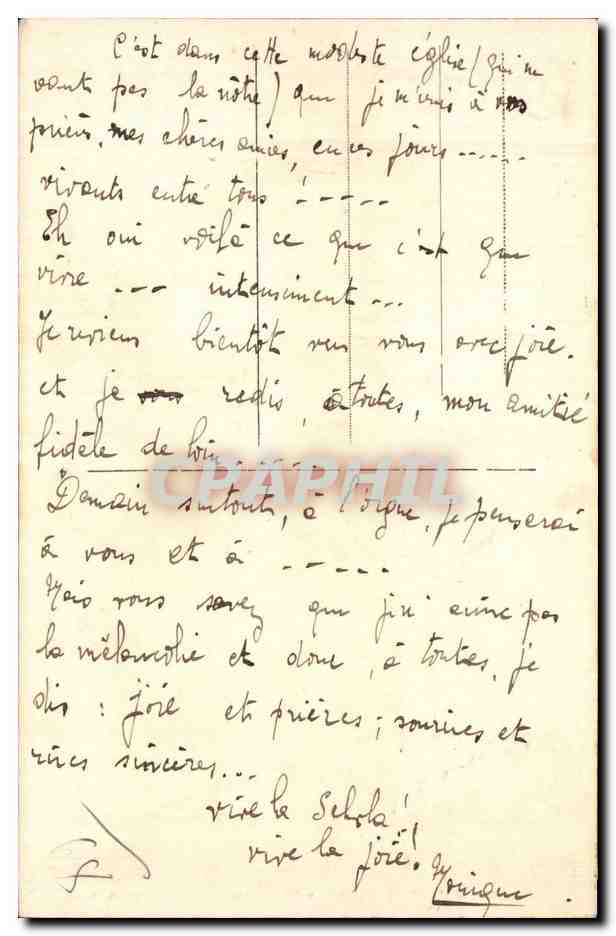 C'est dans cette modeste église (qui ne
vaut pas la nôtre) que je m'unis à vos
prières, mes chères amies, en ces jours ......
vivants entre tous ! -----
Eh oui voilà ce que c'est que
vivre --- intensément ...
Je reviens bientôt vers vous avec joie.
et je redis, à toutes, mon amitié
fidèle de loin. .. .. ..
CPAPHIL
Demain surtout, à l'orgue, je penserai
à vous et à -----
Mais vous savez que je n'aime pas
la mélancolie et donc, à toutes, je
dis : joie et prières ; sourires et
rires sincères...
vive la Schola !
vive la joie !
Monique